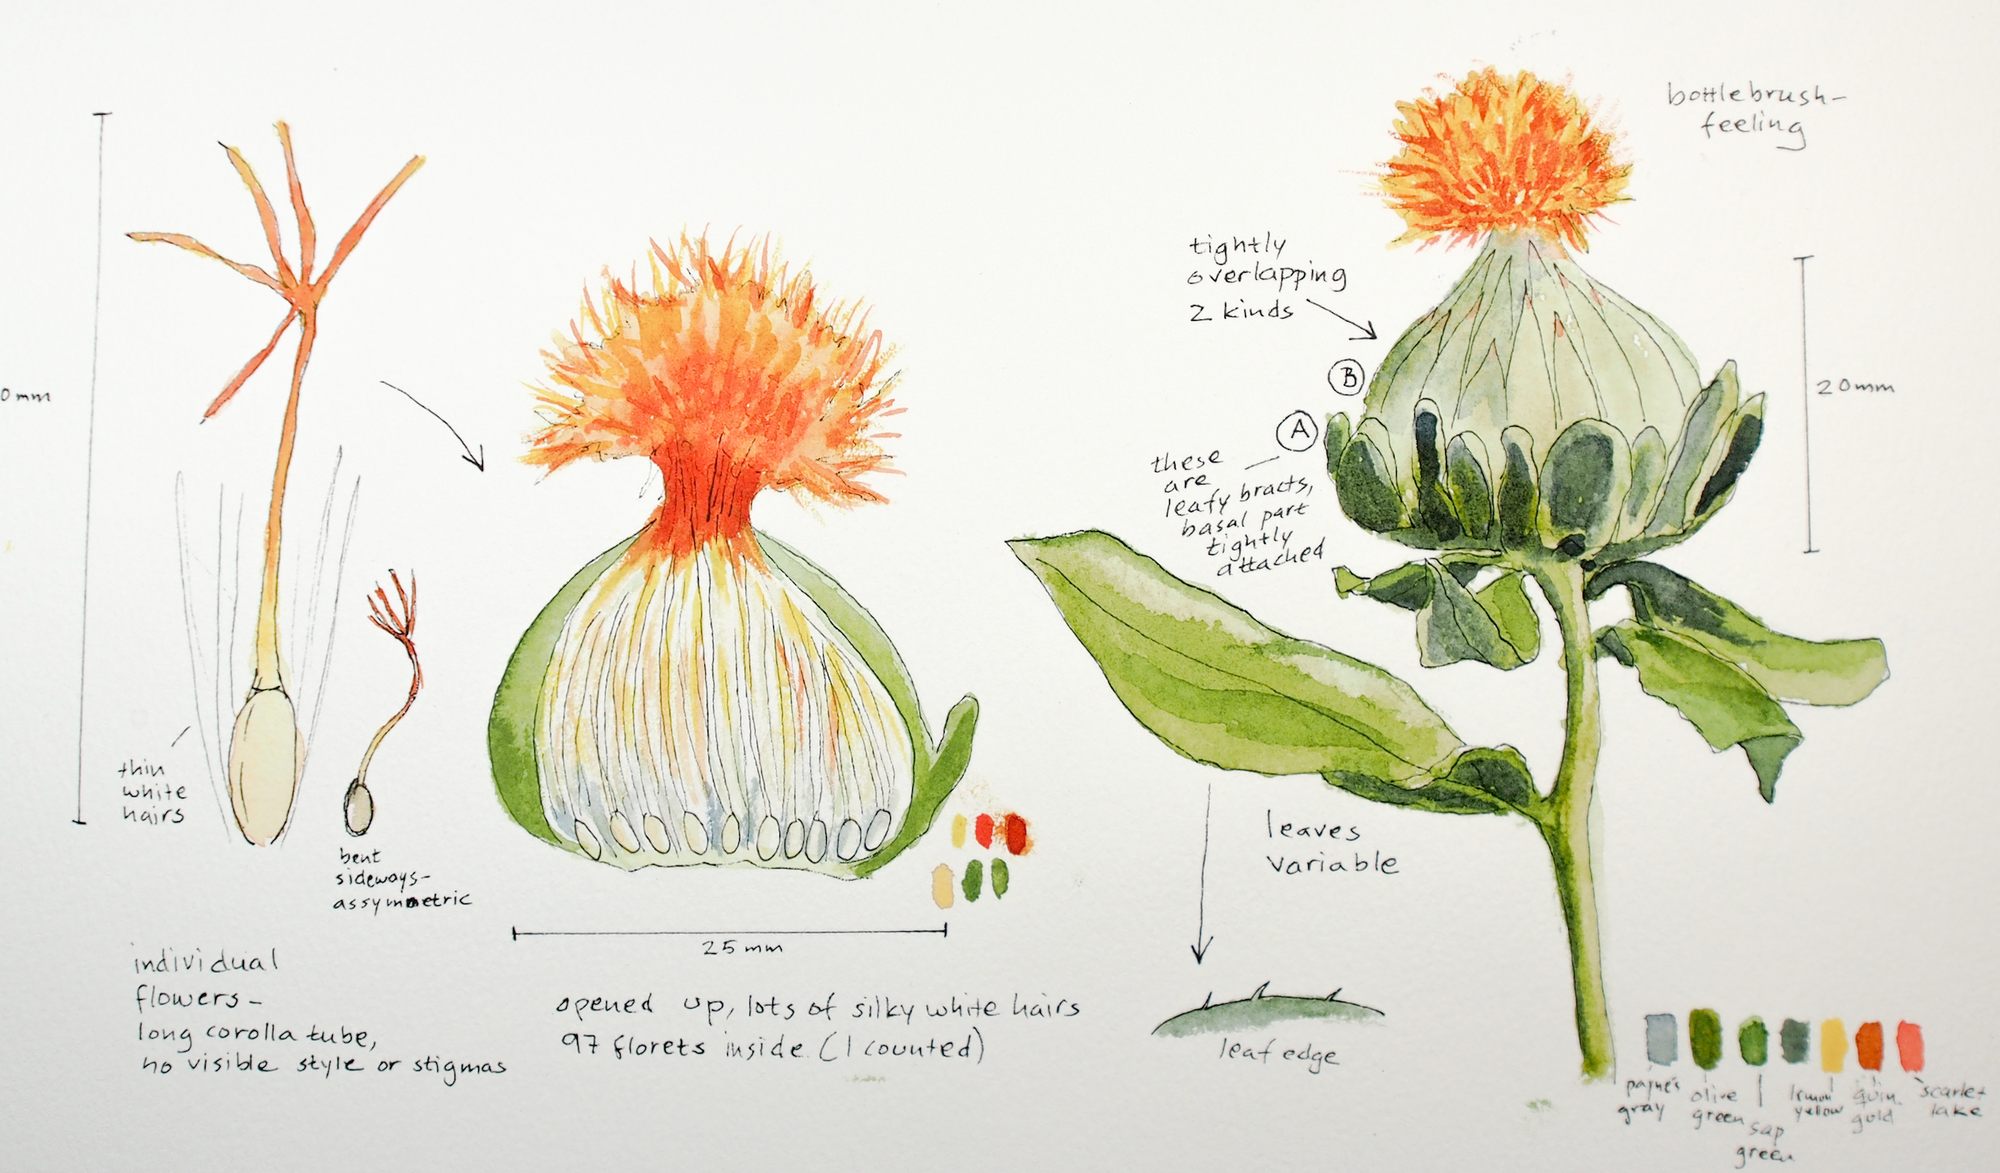 0mm
thin
white
hairs
bent
sideways-
assymmetric
individual
flowers-
long corolla tube,
no visible style or stigmas
25mm
opened up, lots of silky white hairs
97 florets inside. (I counted)
bottlebrush-
feeling
tightly
overlapping
2 kinds
B
A
these
are
leafy bracts,
basal part
tightly
attached
20mm
leaves
variable
leaf edge
payne's
gray
olive
green
sap
green
lemon
yellow
quin.
gold
scarlet
lake